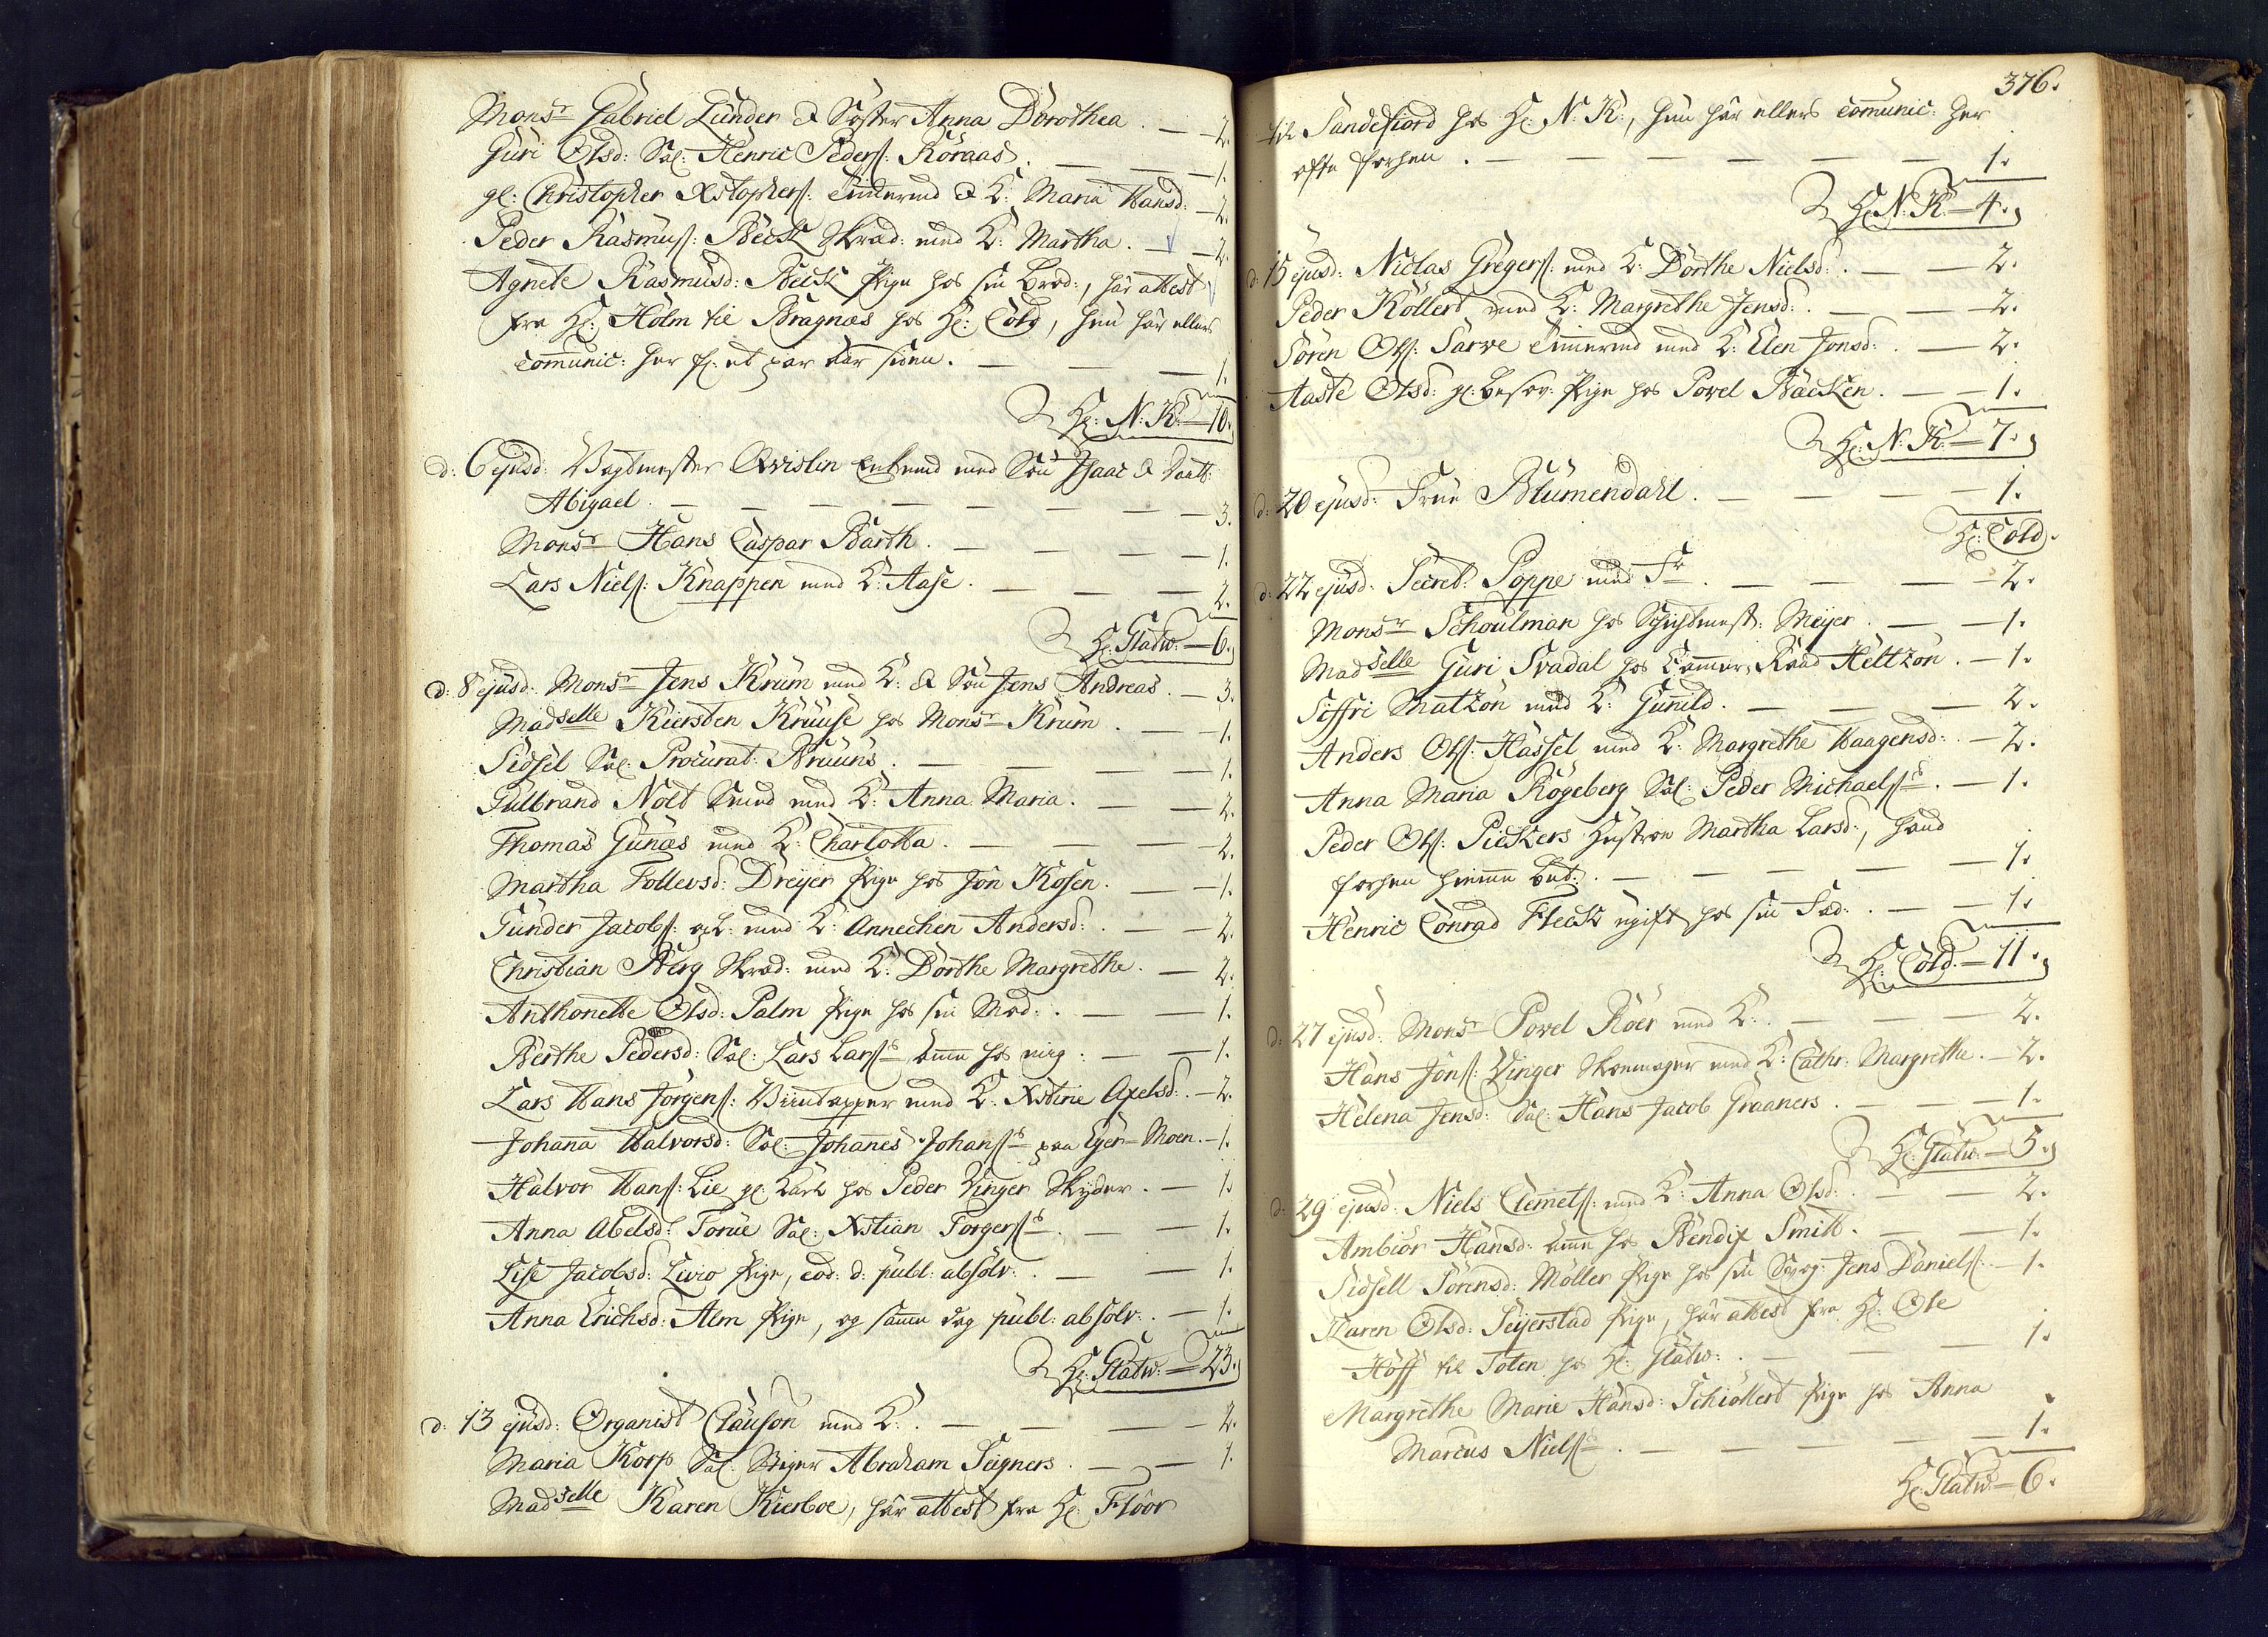 Monsr Gabriel Lunder & Søster Anna Dorothea . — 2.
Guri Olsd: Sal: Henric Peders: Røraas . — — 1.
gl: Christopher Xstophers: Tømermd & K: Maria Hansd: — 2.
Peder Rasmus: Beck Skræd: med K: Martha . — 2.
Agnete Rasmusd: Beck Pige hos sin Brod:, har attest
fra Hr: Holm til Bragnæs hos Hr: Cold, hun har ellers
comunic: her f: et par Aar siden . — — 1.
Hr: N: K: — 10.
d: 6 ejusd: Vagtmester Qvislin Enkemd med Søn Isaac & Daatt:
Abigael . — — — — — — 3.
Monsr Hans Caspar Barth . — — — 1.
Lars Niels: Knappen med K: Aase . — — — 2.
Hr: Statw: — 6.
d: 8 ejusd: Monsr Jens Krum med K: & Søn Jens Andreas . — 3.
Madselle Kiersten Kruuse hos Monsr Krum . — 1.
Sidsel Sal: Procurat: Bruuns . — — — 1.
Gulbrand Nolt Smed med K: Anna Maria . — — 2.
Thomas Gunæs med K: Charlotta . — — — 2.
Martha Tollevsd: Dreyer Pige hos Jon Kosen . — 1.
Gunder Jacobs: med K: Annechen Andersd: . — — 2.
Christian Berg Skræd: med K: Dorthe Margrethe . — 2.
Anthonette Olsd: Palm Pige hos sin Mod: . — — 1.
Berthe Pedersd: Sal: Lars Lars: Ame hos mig . — — 1.
Lars Hans Jørgens: Viintapper med K: Xstine Axelsd: . — 2.
Johana Halvorsd: Sal: Johanes Johans: paa Eger-Moen . — 1.
Halvor Hans: Lie gl: Karl hos Peder Vinger Skyder . — 1.
Anna Abelsd: Torue Sal: Xstian Torgers: . — — 1.
Lise Jacobsd: Livio Pige, eod: d: publ: absolv: . — — 1.
Anna Erichsd: Alm Pige, og same dag publ: absolv: . — 1.
Hr: Statw: — 23.
d: 13 ejusd: Organist Clauson med K: . — — — 2.
Maria Korp Sal: Stiger Abraham Seigners . — — 1.
Madselle Karen Kierboe, har attest fra Hr: Floor
376.
til Sandefiord hos Hr: N: K:, hun har ellers comunic: her
ofte forhen . — — — — — — 1.
Hr: N: K: — 4.
d: 15 ejusd: Niclas Gregers: med K: Dorthe Nielsd: . — — 2.
Peder Kollert med K: Margrethe Jensd: . — — 2.
Søren Ols: Sarve Tiimermd med K: Elen Jonsd: . — 2.
Aaste Olsd: gl: besov: Pige hos Povel Backen . — — 1.
Hr: N: K: — 7.
d: 20 ejusd: Frue Blumendahl . — — — — 1.
Hr: Cold.
d: 22 ejusd: Secret: Poppe med Fr . — — — — 2.
Monsr Schoulman hos Schichtmest: Meyer . — — 1.
Madselle Guri Svadal hos Camer Raad Heltzon . — 1.
Siffri Matzon med K: Gunild . — — — 2.
Anders Ols: Hassel med K: Margrethe Haagensd: . — 2.
Anna Maria Kogeberg Sal: Peder Michaels: . — 1.
Peder Ols: Pickers Hustroe Martha Larsd:, hand
forhen hieme Ber: . — — — — — 1.
Henric Conrad Fleck ugift hos sin Fad: . — — 1.
Hr: Cold. — 11.
d: 27 ejusd: Monsr Povel Røer med K: . — — — 2.
Hans Jons: Vinger Skoemager med K: Cathr: Margrethe . — 2.
Helena Jensd: Sal: Hans Jacob Graaners . — — — 1.
Hr: Statw: — 5.
d: 29 ejusd: Niels Clemets: med K: Anna Olsd: . — — 2.
Ambior Hansd: Ame hos Bendix Smitt . — — 1.
Sidsell Sørensd: Møller Pige hos sin Svog: Jens Daniels: . — 1.
Karen Olsd: Seyerstad Pige, har attest fra Hr: Ole
Hoff til Toten hos Hr: Statw: . — — — 1.
Margrethe Marie Hansd: Schiøllert Pige hos Anna
Marcus Niels: . — — — — — 1.
Hr: Statw: — 6.